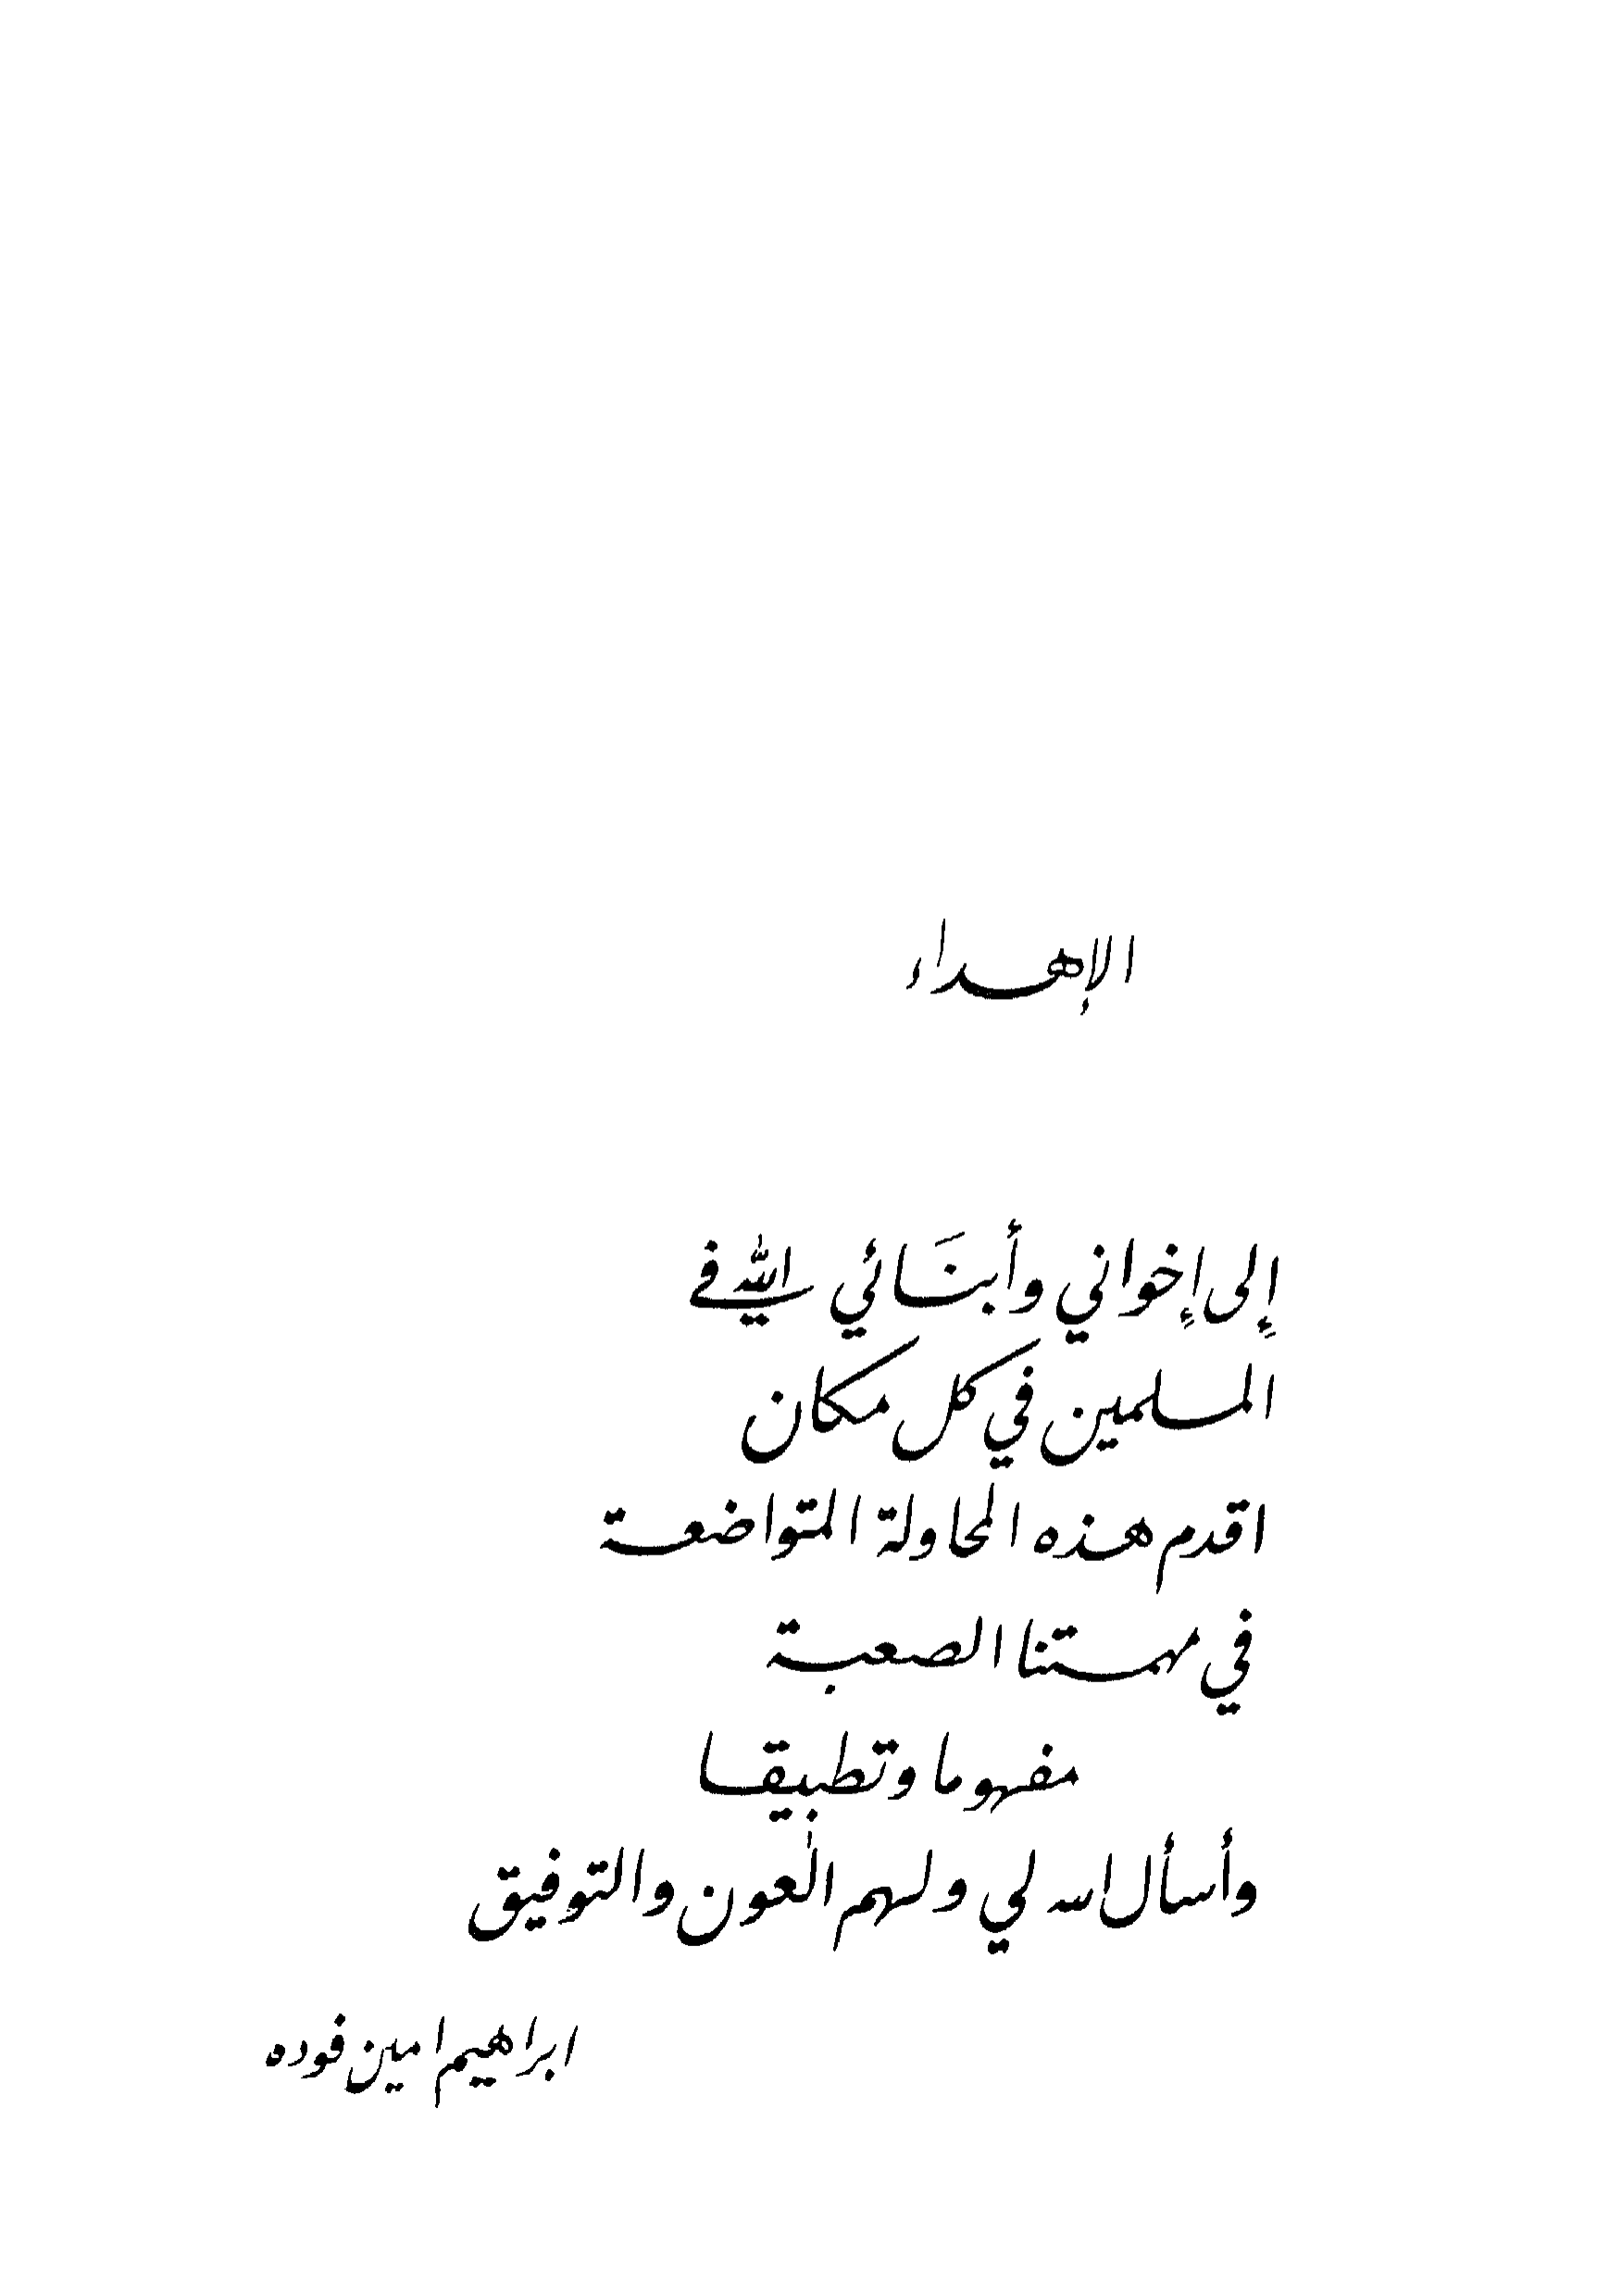 الإهداء
إلى إخواني وأبنَائي في الله
المسلمين في كل مكان
اقدم هذه المحاولة المتواضعة
في مهمتنا الصعبة
مفهوما وتطبيقا
وأسأل الله لي ولهم العون والتوفيق
ابراهيم امين فوده